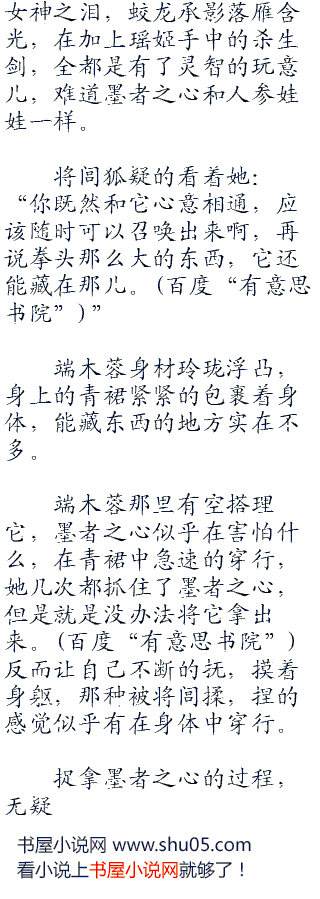 女神之泪，蛟龙承影落雁含
光，在加上瑶姬手中的杀生
剑，全都是有了灵智的玩意
儿，难道墨者之心和人参娃
娃一样。
将闾狐疑的看着她：
“你既然和它心意相通，应
该随时可以召唤出来啊，再
说拳头那么大的东西，它还
能藏在那儿。(百度“有意思
书院”)”
端木蓉身材玲珑浮凸，
身上的青裙紧紧的包裹着身
体，能藏东西的地方实在不
多。
端木蓉那里有空搭理
它，墨者之心似乎在害怕什
么，在青裙中急速的穿行，
她几次都抓住了墨者之心，
但是就是没办法将它拿出
来。(百度“有意思书院”)
反而让自己不断的抚，摸着
身躯，那种被将闾揉，捏的
感觉似乎有在身体中穿行。
捉拿墨者之心的过程，
无疑
书屋小说网 www.shu05.com
看小说上书屋小说网就够了！